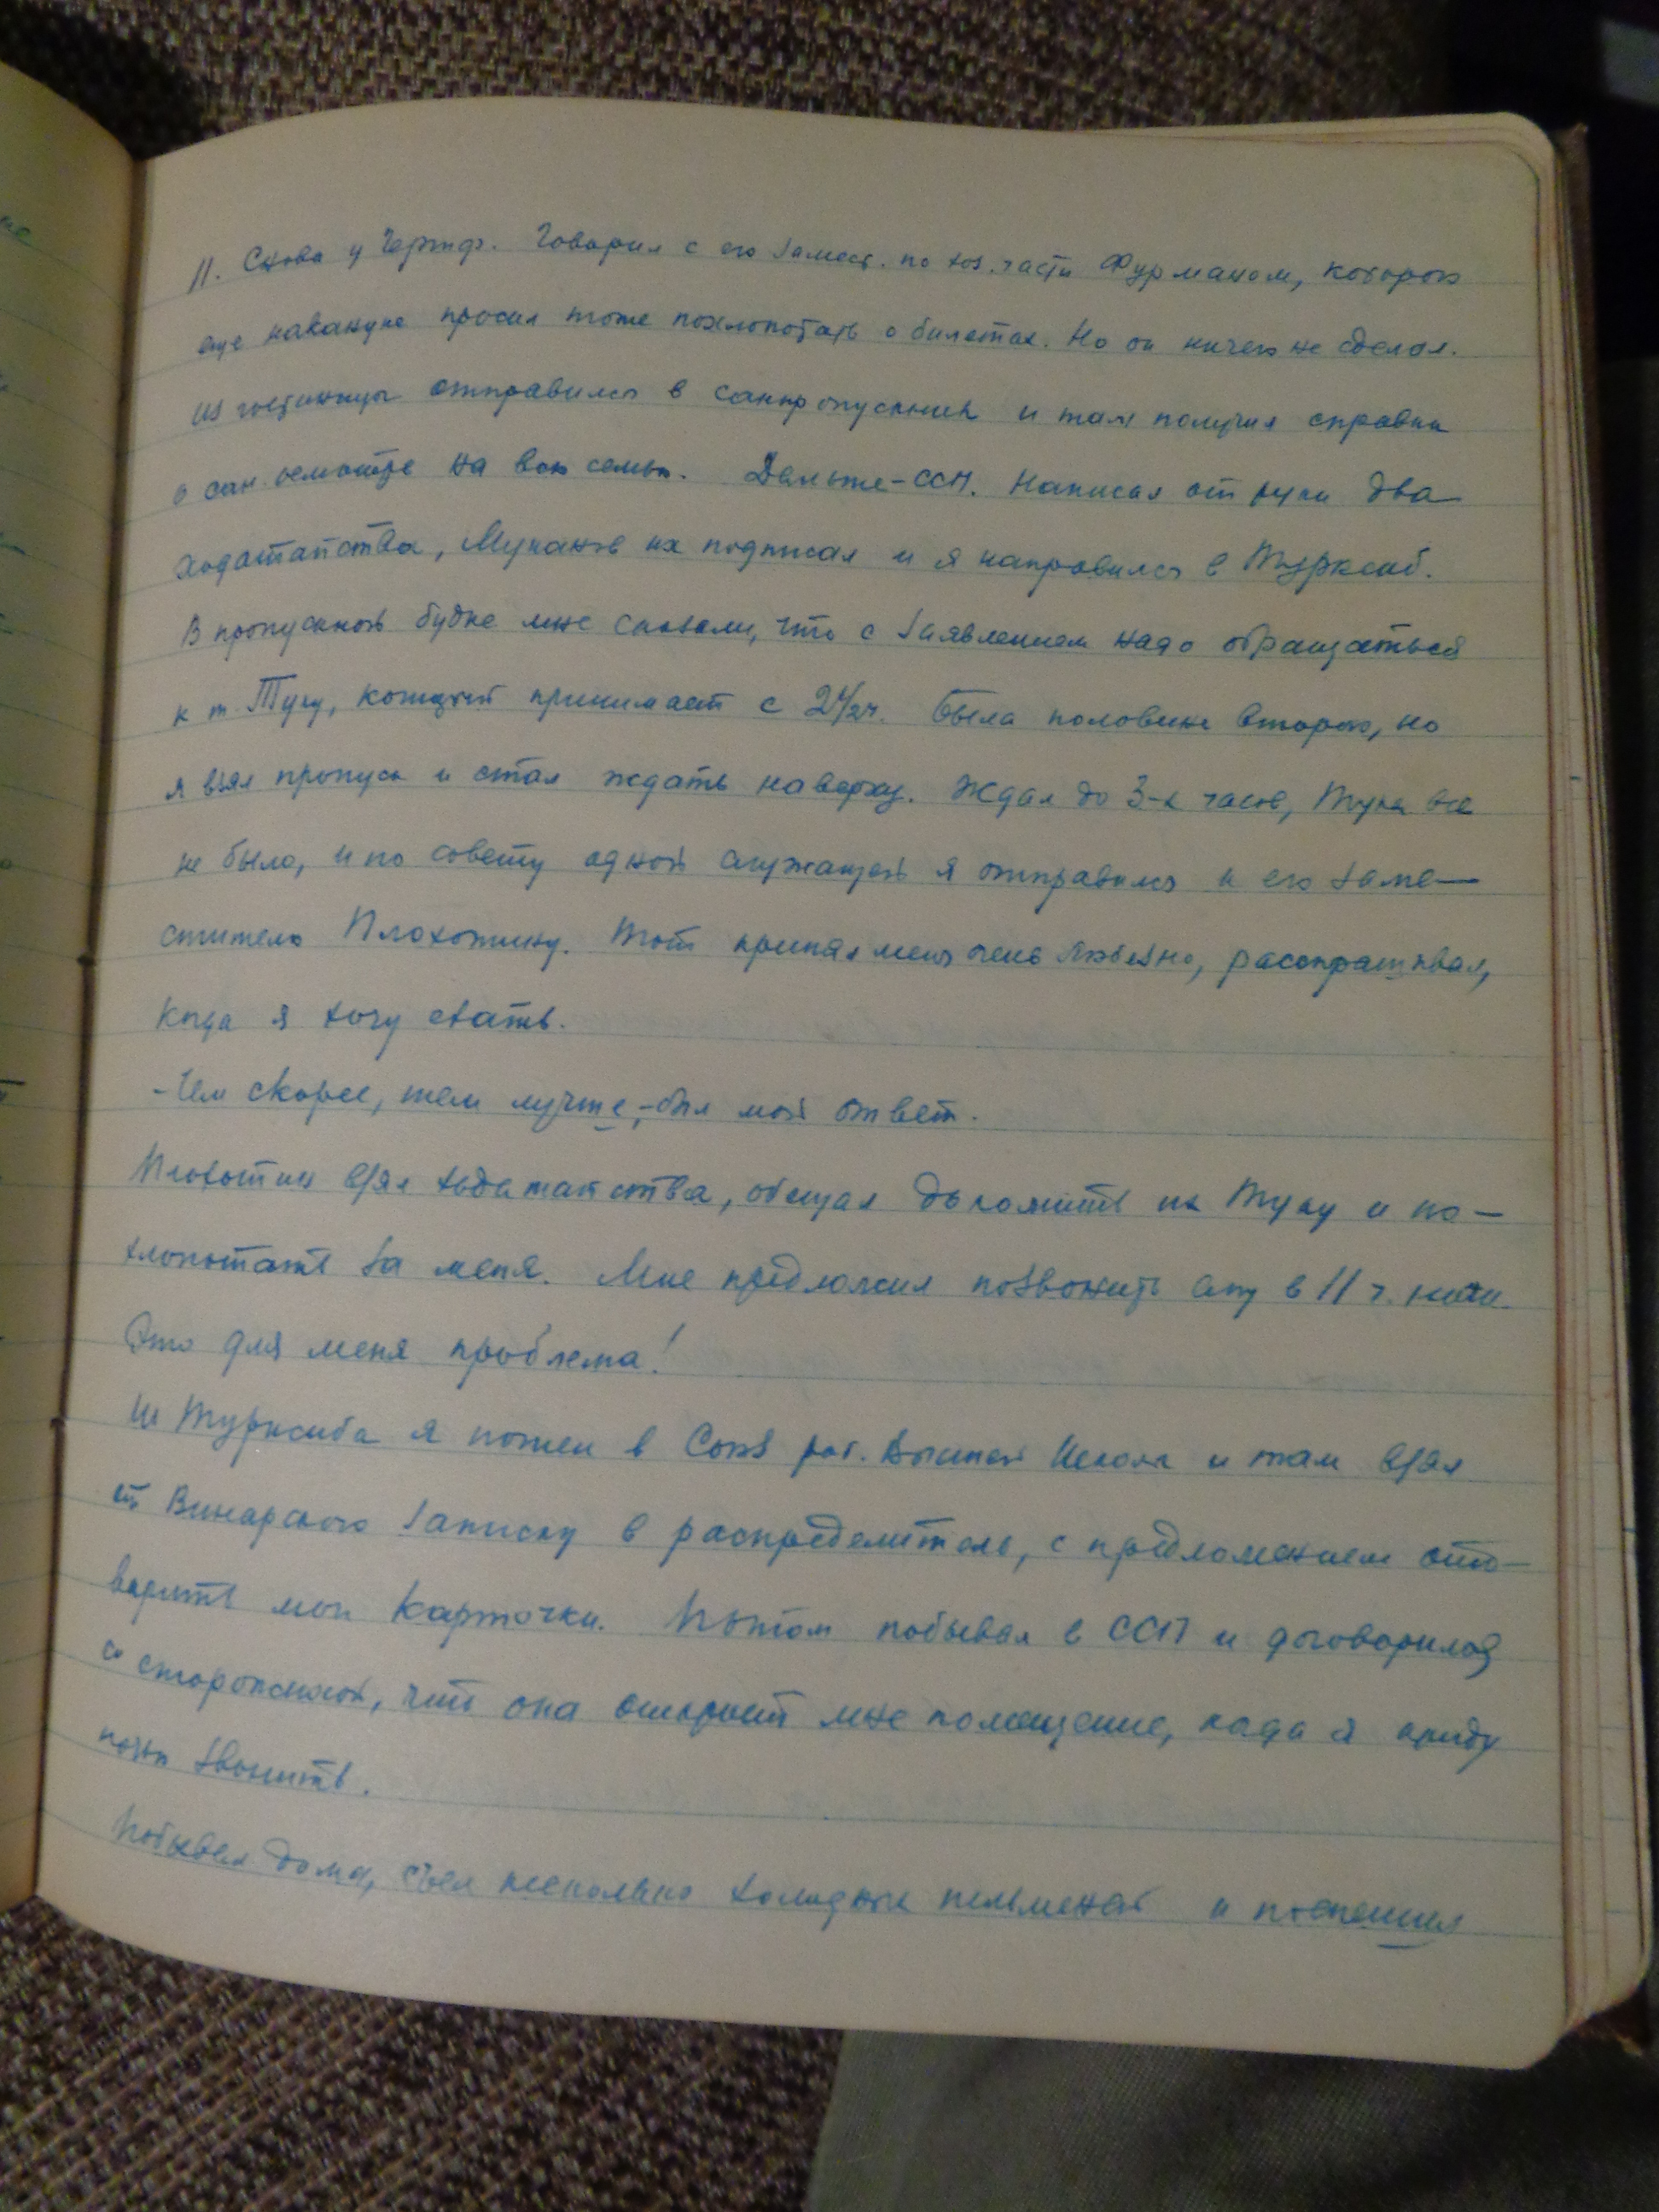 11. Снова у Чертф. Говорил с его замест. по хоз. части Фурманом, которого
еще накануне просил тоже похлопотать о билетах. Но он ничего не сделал.
Из гостиницы отправился в санпропускник и там получил справки
о сан. осмотре на всю семью. Дальше – ССП. Написал от руки два
ходатайства, Муканов их подписал и я направился в Турксиб.
В пропускной будке мне сказали, что с заявлением надо обращаться
к т. Туку, который принимает с 2 1/2 ч. Была половина второго, но
я взял пропуск и стал ждать наверху. Ждал до 3-х часов, Тука все
не было, и по совету одной служащей я отправился к его заме-
стителю Плохотину. Тот принял меня очень любезно, расспрашивал,
когда я хочу ехать.
- Чем скорее, тем лучше, - был мой ответ.
Плохотин взял ходатайства, обещал доложить их Туку и по-
хлопотать за меня. Мне предложил позвонить ему в 11 ч. ночи.
Это для меня проблема!
Из Турксиба я пошел в Союз раб. Высшей Школы и там взял
от Винарского записку в распределитель, с предложением ото-
варить мои карточки. Потом побывал в ССП и договорился
со сторожихой, что она откроет мне помещение, когда я приду
ночью звонить.
Побывал дома, съел несколько холодных пельменей и поспешил